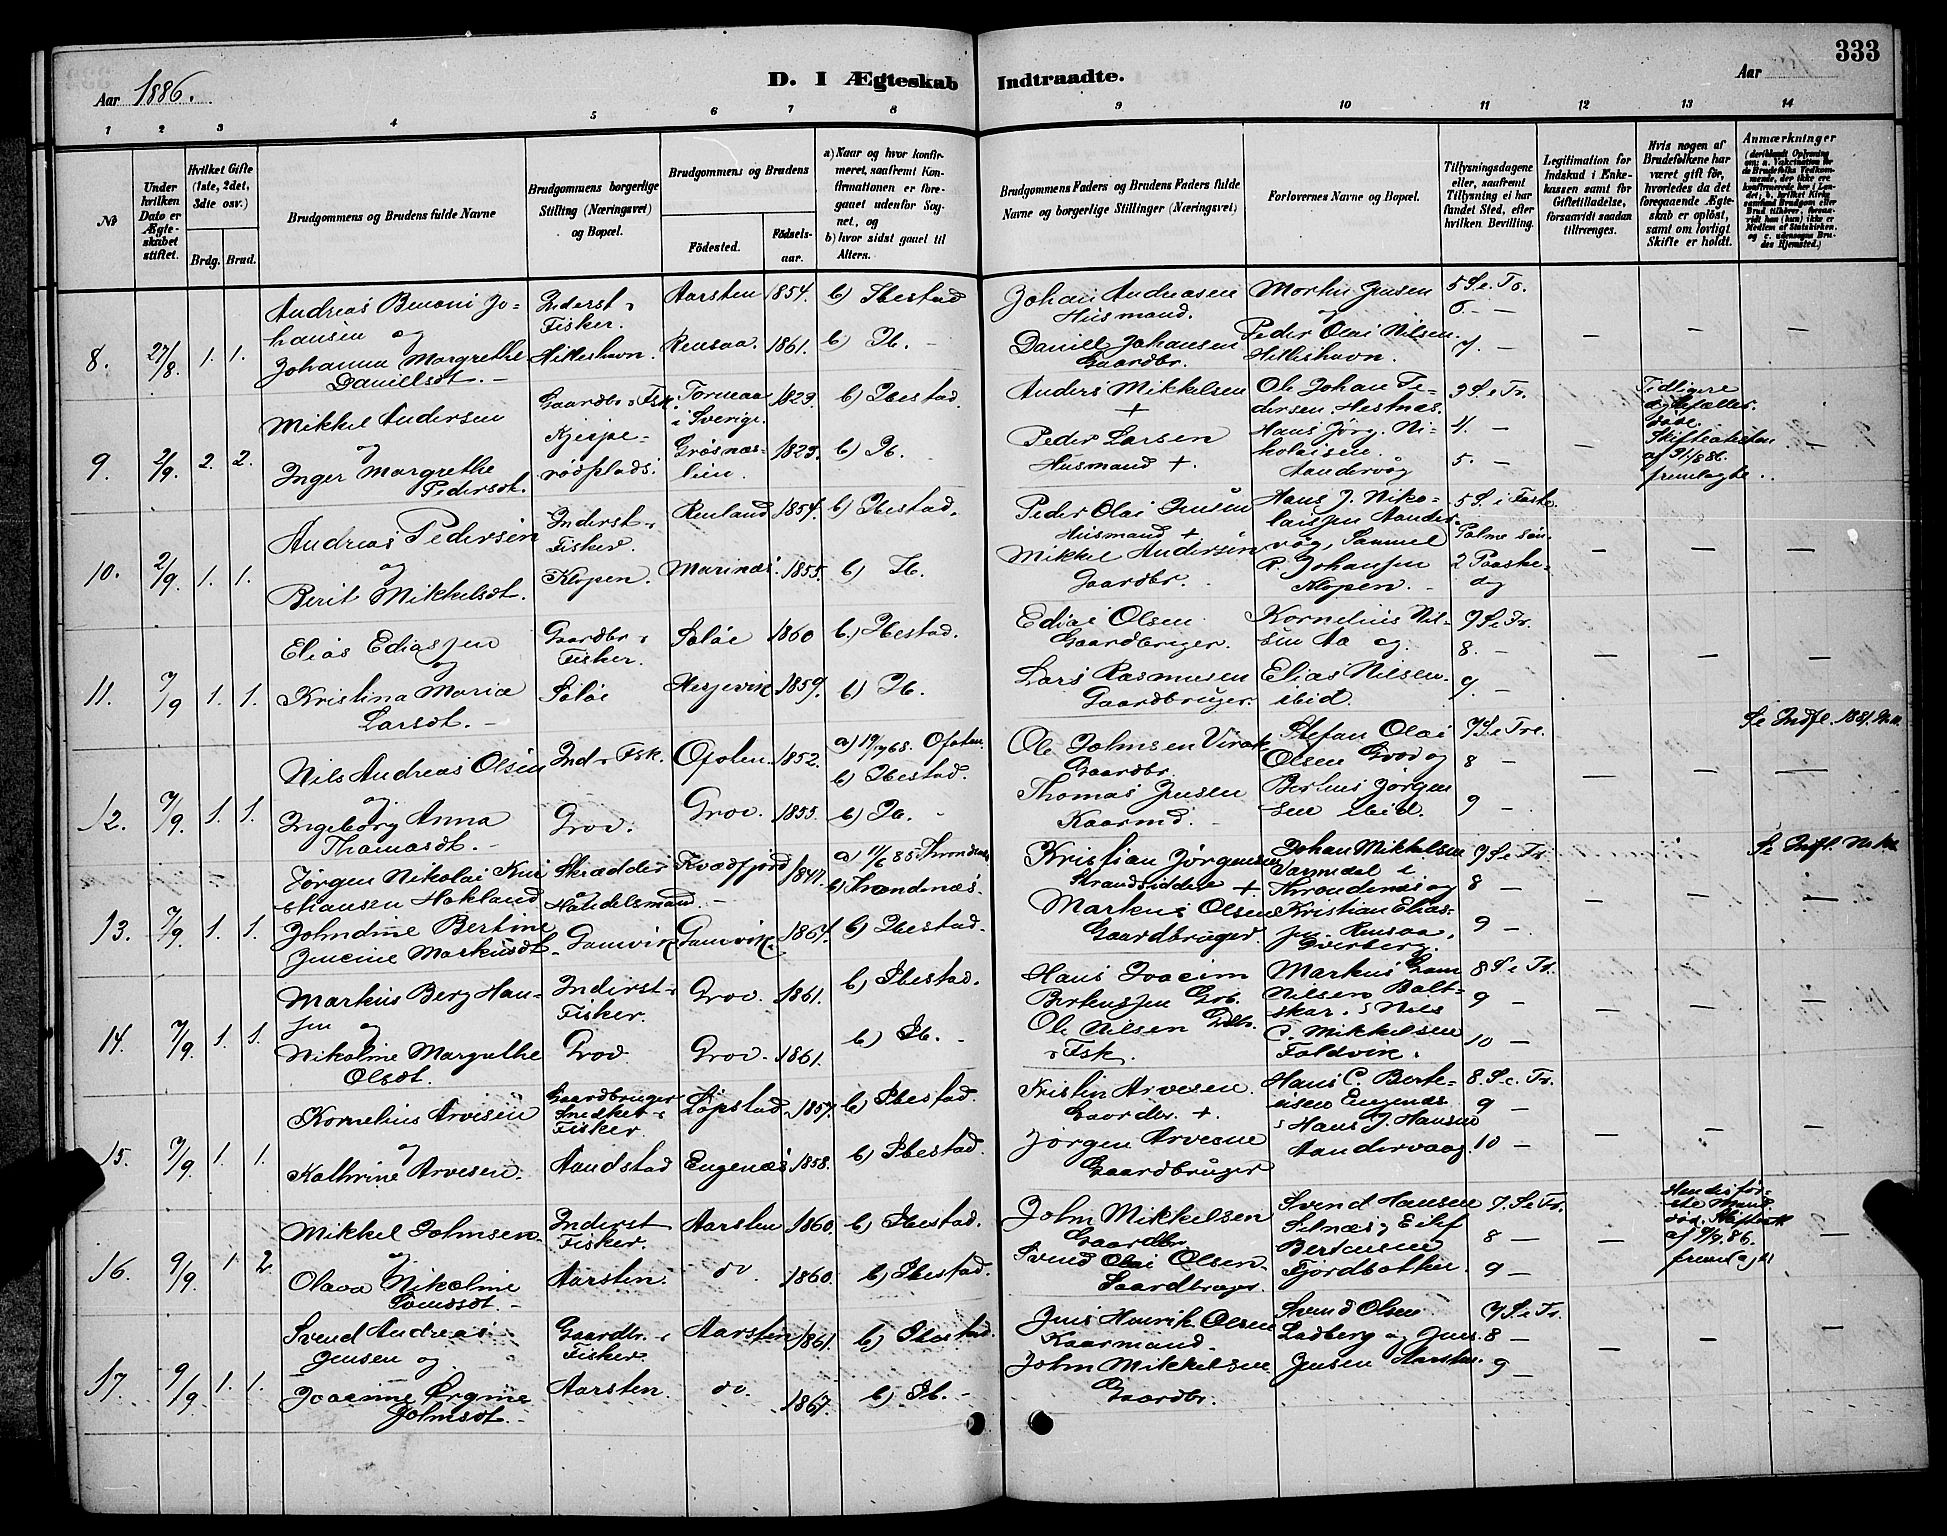 333
Aar 1886.
D. I Ægteskab Indtraadte.
Aar
1 2 3 4 5 6 7 8 9 10 11 12 13 14
№
Under hvilken Dato er Ægteskabet stiftet.
Hvilket Gifte (1ste, 2det, 3die osv.)
Brdg. Brud.
Brudgommens og Brudens fulde Navne
Brudgommens borgerlige Stilling (Næringsvei) og Bopæl.
Brudgommens og Brudens
Fødested.
Fødselsaar.
a) Naar og hvor konfirmeret, saafremt Konfirmationen er foregaaet udenfor Sognet, og
b) hvor sidst gaaet til Alters.
Brudgommens Faders og Brudens Faders fulde Navne og borgerlige Stillinger (Næringsvei)
Forlovernes Navne og Bopæl.
Tillysningsdagene eller, saafremt Tillysning ei har fundet Sted, efter hvilken Bevilling.
Legitimation for Indskud i Enkekassen samt for Giftetilladelse, forsaavidt saadan tiltrænges.
Hvis nogen af Brudefolkene har været gift før, hvorledes da det foregaaende Ægteskab er opløst, samt om lovligt Skifte er holdt.
Anmærkninger
8. 27/8. 1. 1. Andreas Benoni Johansen og Johanna Margrethe Danielsdt. Inderst & Fisker. Hilleshavn. Aarsten 1854. b) Ibestad
Rensaa. 1861. b) Ib. Johan Andreasen Husmand. Daniel Johansen Gaardbr. Morten Jensen & Peder Olai Nilsen Hilleshavn. 5 S. e. Tr. 6. — 7. —
9. 2/9. 2. 2. Mikkel Andersen og Inger Margrethe Pedersdt. Gaardbr & Fsk. Torneaa i Sverige. 1823. b) Ibestad.
1823. b) Ib. Anders Mikkelsen + Peder Larsen Husmand +. Ole Johan Pedersen. Hestnæs. Hans Jørg. Nikolaisen. Aandervåg 3 S. e. Tr. 4. — 5. — Tidligere ægtefæller døde. Skifteattester af 31/8 86. fremlagte.
10. 2/9. 1. 1. Andreas Pedersen og Berit Mikkelsdt. Inderst & Fisker. Klopen. Renland 1854. b) Ibestad.
Marinæs. 1855. b) Ib. Peder Olai Jensen Husmand + Mikkel Andersen Gaardbr. Hans J. Nikolaisen Aandervåg, Samuel P. Johansen Klopen. 5 S. i Faste. Palmesøn. 2 Paaskedag
11. 7/9 1. 1. Elias Ediassen og Kristina Maria Larsdt. Gaardbr & Fisker. Saløe Saløe 1860 b.) Ibestad.
1859. b) Ib. Edias Olsen. Gaardbruger. Lars Rasmusen Gaardbruger. Kornelius Nilsen Aa og Elias Nilsen. ibid. 7 S. e. Tr. 8. — 9. —
12. 7/9. 1. 1. Nils Andreas Olsen og Ingeborg Anna Thomasdt. Ind & Fsk. Grov. Ofoten. 1852. a) 19/7 68. Ofoten. b) Ibestad.
Grov. 1855. b) Ib. Ole Johnsen Gaardbr. Thomas Jensen Kaarmd. Stefan Olai Olsen Grov og Bertius Jørgensen ibid. 7 S. e. Tr. 8 — 9 — Se Indfl. 1881.
13. 7/9 1. 1. Jørgen Nikolai Kristiansen Hokland & Johndine Bertine Jensine Markusdt. Skrædder & Handelsmand. Gamvik Kvædfjord 1847. a) 11/6 85 Trondenæs b) Trondenæs.
Gamvik. 1864. b) Ibestad. Kristian Jørgensen Strandsidder + Markus Olsen Gaardbruger. Johan Mikkelsen i Trondenæs og Kristian Eliassen. Rensaa, Sverberg. 7 S. e. Tr. 8 — 9 —
14. 7/9. 1. 1. Markus Berg Hansen og Nikoline Margrethe Olsdt. Inderst & Fisker. Grov Grov. 1861. b) Ibestad.
Grov. 1861. b) Ib. Hans Joacim Bertheussen Grb. Ole Nilsen Gdbr. & Fsk. Markus Gam Nilsen Baltskar. & Nils C. Mikkelsen Foldvik. 8 S. e. Tr. 9 — 10 —
15. 7/9. 1. 1. Kornelius Arvesen & Kathrine Arvesen. Gaardbruger Snedker & Fisker. Aandstad Løpstad. 1857. b) Ibestad.
Eugenæs 1858. b) Ibestad. Kristen Arvesen. Gaardbr. + Jørgen Arvesen Gaardbruger Hans C. Berteusen Engenæs & Hans J. Hansen Aandervaag. 8. S. e. Tr. 9 — 10 —
16. 9/9. 1 2. Mikkel Johnsen & Olava Nikoline Svendsdt. Inderst Fisker. Aarsten. Aarsten 1860. b) Ibestad.
do. 1860. b) Ibestad. John Mikkelsen Gaardbr Svend Olai Olsen. Gaardbruger. Svend Hansen Selnæs, Eilif Bertheusen Fjordbotten. 7. S. e. Tr. 8 — 9 — Hendes første Mand død. Skifteatt af 9/9. 86. fremlagt
17. 9/9. 1. 1. Svend Andreas Jensen og Joacine Ørgine Johnsdt. Gaardbr. & Fisker. Aarsten. Aarsten 1861. b) Ibestad.
do. 1867. b) Ib. Jens Henrik Olsen Kaarmand. John Mikkelsen Gaardbr. Svend Olsen Ladberg og Jens Jensen Aarsten. 7 S. e. Tr. 8 — 9 —